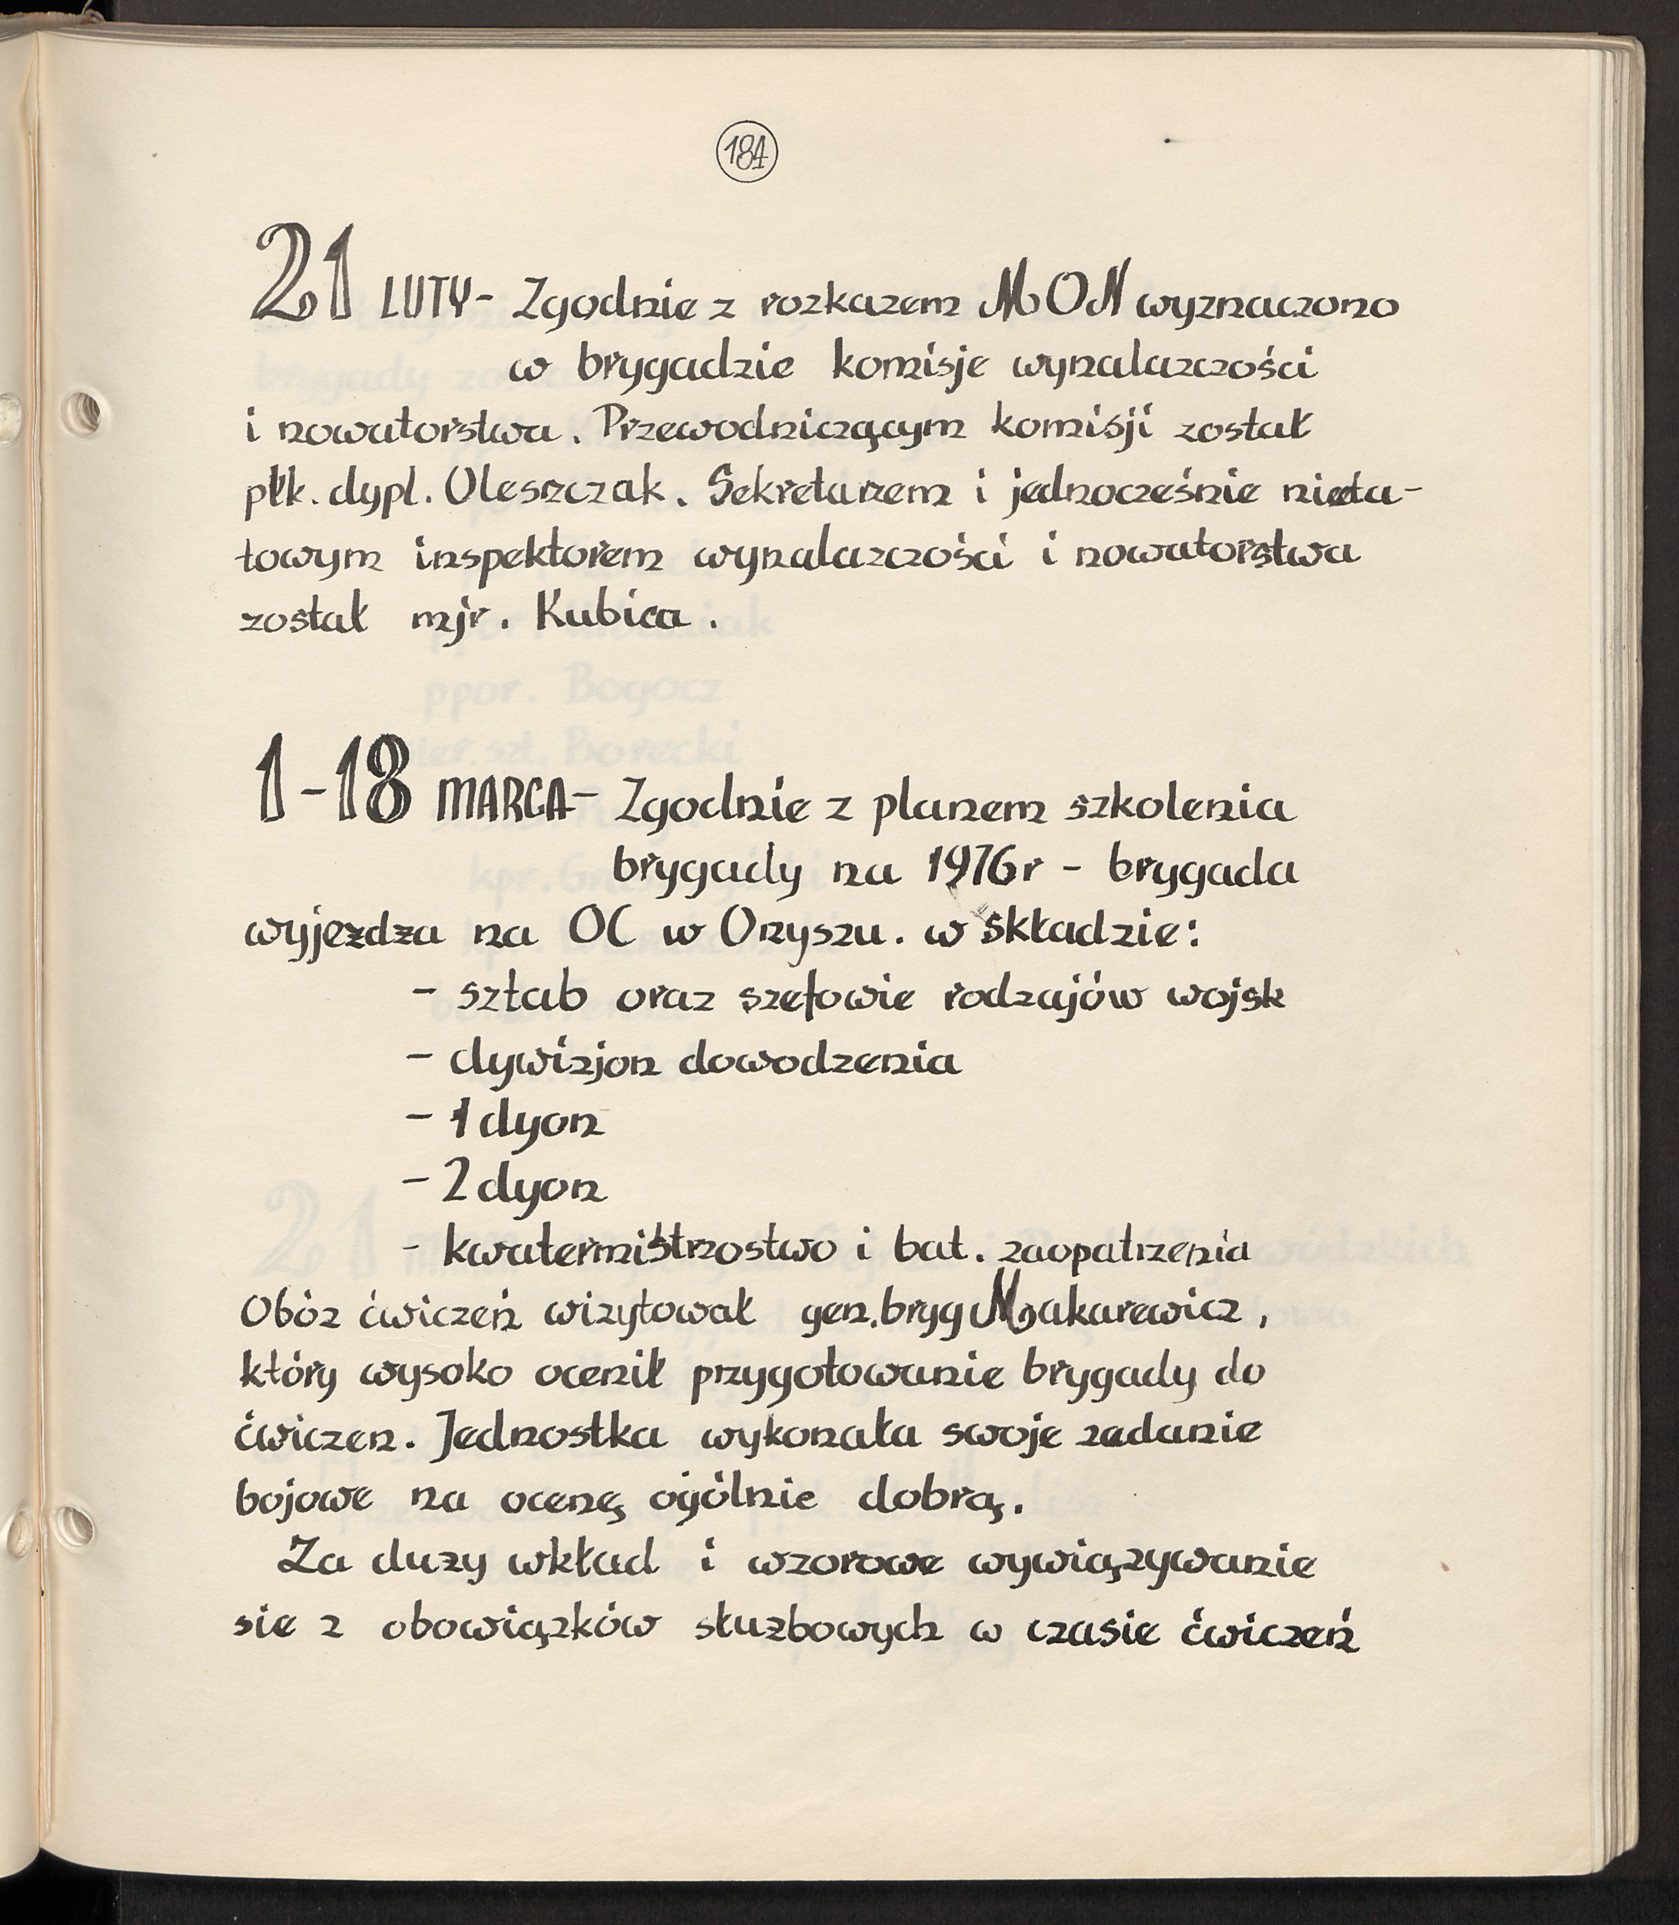 184
21 LUTY - Zgodnie z rozkazem MON wyznaczono
w brygadzie komisje wynalazczości
i nowatorstwa. Przewodniczącym komisji został
płk. dypl. Oleszczak. Sekretarzem i jednocześnie
towym inspektorem wynalazczości i nowatorstwa
został mjr. Kubica.
1-18 MARCA - Zgodnie z planem szkolenia
brygady na 1976r - brygada
wyjezdza na OC w Orzyszu. w składzie:
- sztab oraz szefowie rodzajów wojsk
- dywizjon dowodzenia
- 1 dyon
- 2 dyon
- kwatermistrzostwo i bat. zaopatrzenia
Obóz ćwiczeń wizytował gen.bryg Makarewicz,
który wysoko ocenił przygotowanie brygady do
ćwiczen. Jednostka wykonała swoje zadanie
bojowe na ocenę ogólnie dobrą.
Za duzy wkład i wzorowe wywiązywanie
sie z obowiązków słuzbowych w czasie ćwiczeń